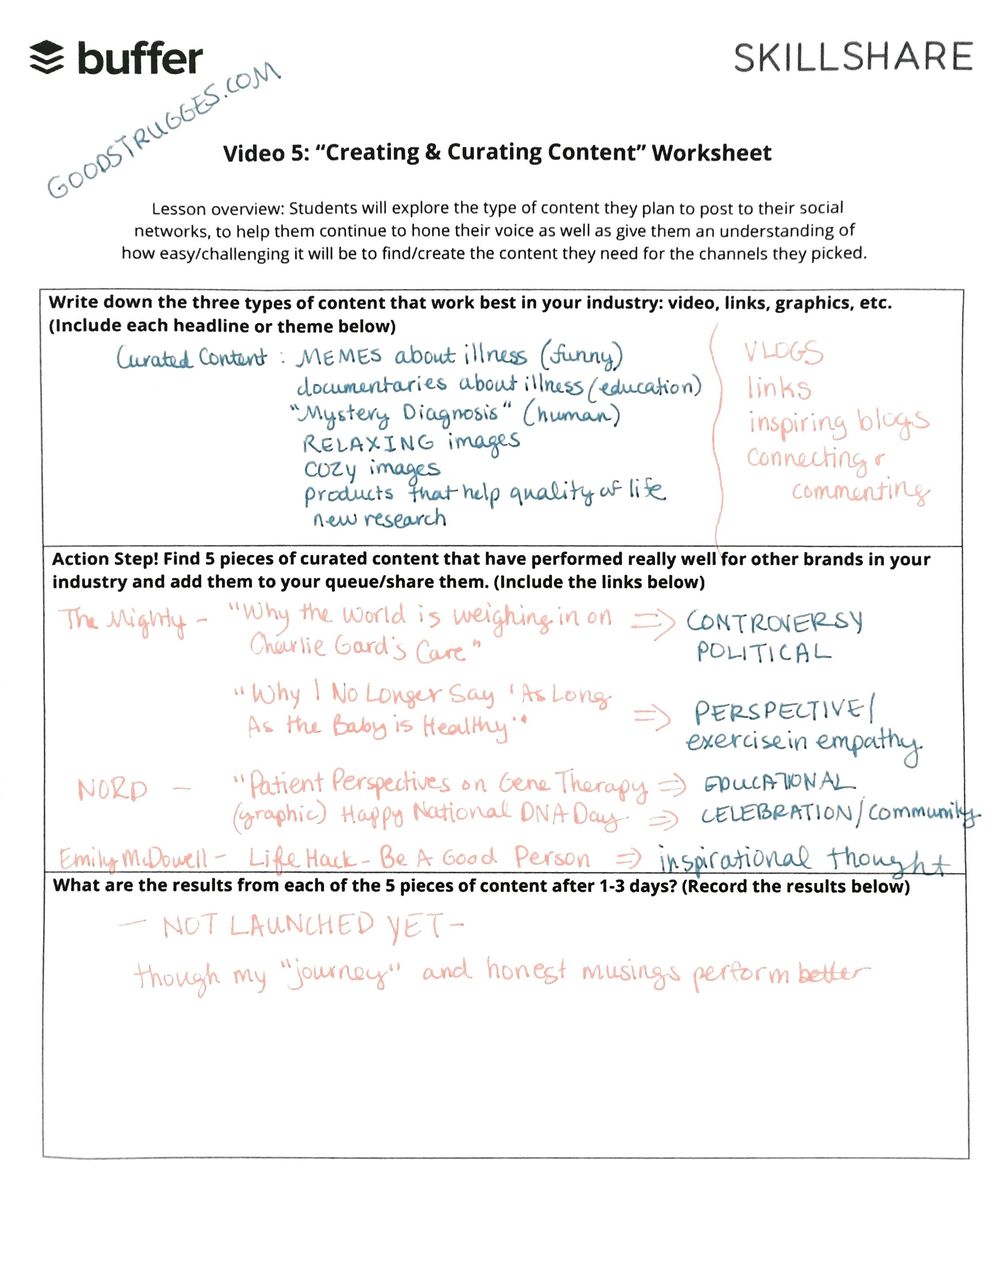 buffer
SKILLSHARE
GOODSTRUGGES.COM
Video 5: “Creating & Curating Content” Worksheet
Lesson overview: Students will explore the type of content they plan to post to their social
networks, to help them continue to hone their voice as well as give them an understanding of
how easy/challenging it will be to find/create the content they need for the channels they picked.
Write down the three types of content that work best in your industry: video, links, graphics, etc.
(Include each headline or theme below)
Curated Content : MEMES about illness (funny)
documentaries about illness (education)
"Mystery Diagnosis" (human)
RELAXING images
COZY images
products that help quality of life
new research
VLOGS
links
inspiring blogs
connecting &
commenting
Action Step! Find 5 pieces of curated content that have performed really well for other brands in your
industry and add them to your queue/share them. (Include the links below)
The Mighty - "Why the World is weighing in on ⇒ CONTROVERSY
Charlie Gard's Care" POLITICAL
"Why I No Longer Say 'As Long ⇒ PERSPECTIVE/
As the Baby is Healthy'" exercise in empathy
NORD - "Patient Perspectives on Gene Therapy ⇒ EDUCATIONAL
(graphic) Happy National DNA Day ⇒ CELEBRATION/Community
Emily McDowell - Life Hack - Be A Good Person ⇒ inspirational thought
What are the results from each of the 5 pieces of content after 1-3 days? (Record the results below)
- NOT LAUNCHED YET -
though my "journey" and honest musings perform better